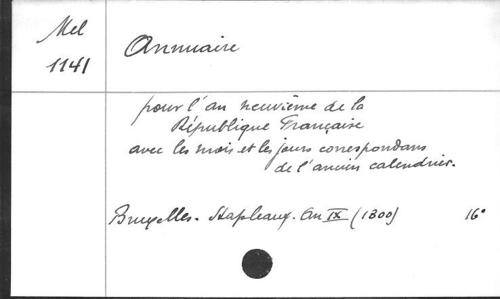 Mel
1141
Annuaire
pour l'an neuvième de la
République Française
avec les mois et les jours correspondans
de l'ancien calendrier.
Bruxelles. Stapleaux. An IX (1800) 16°